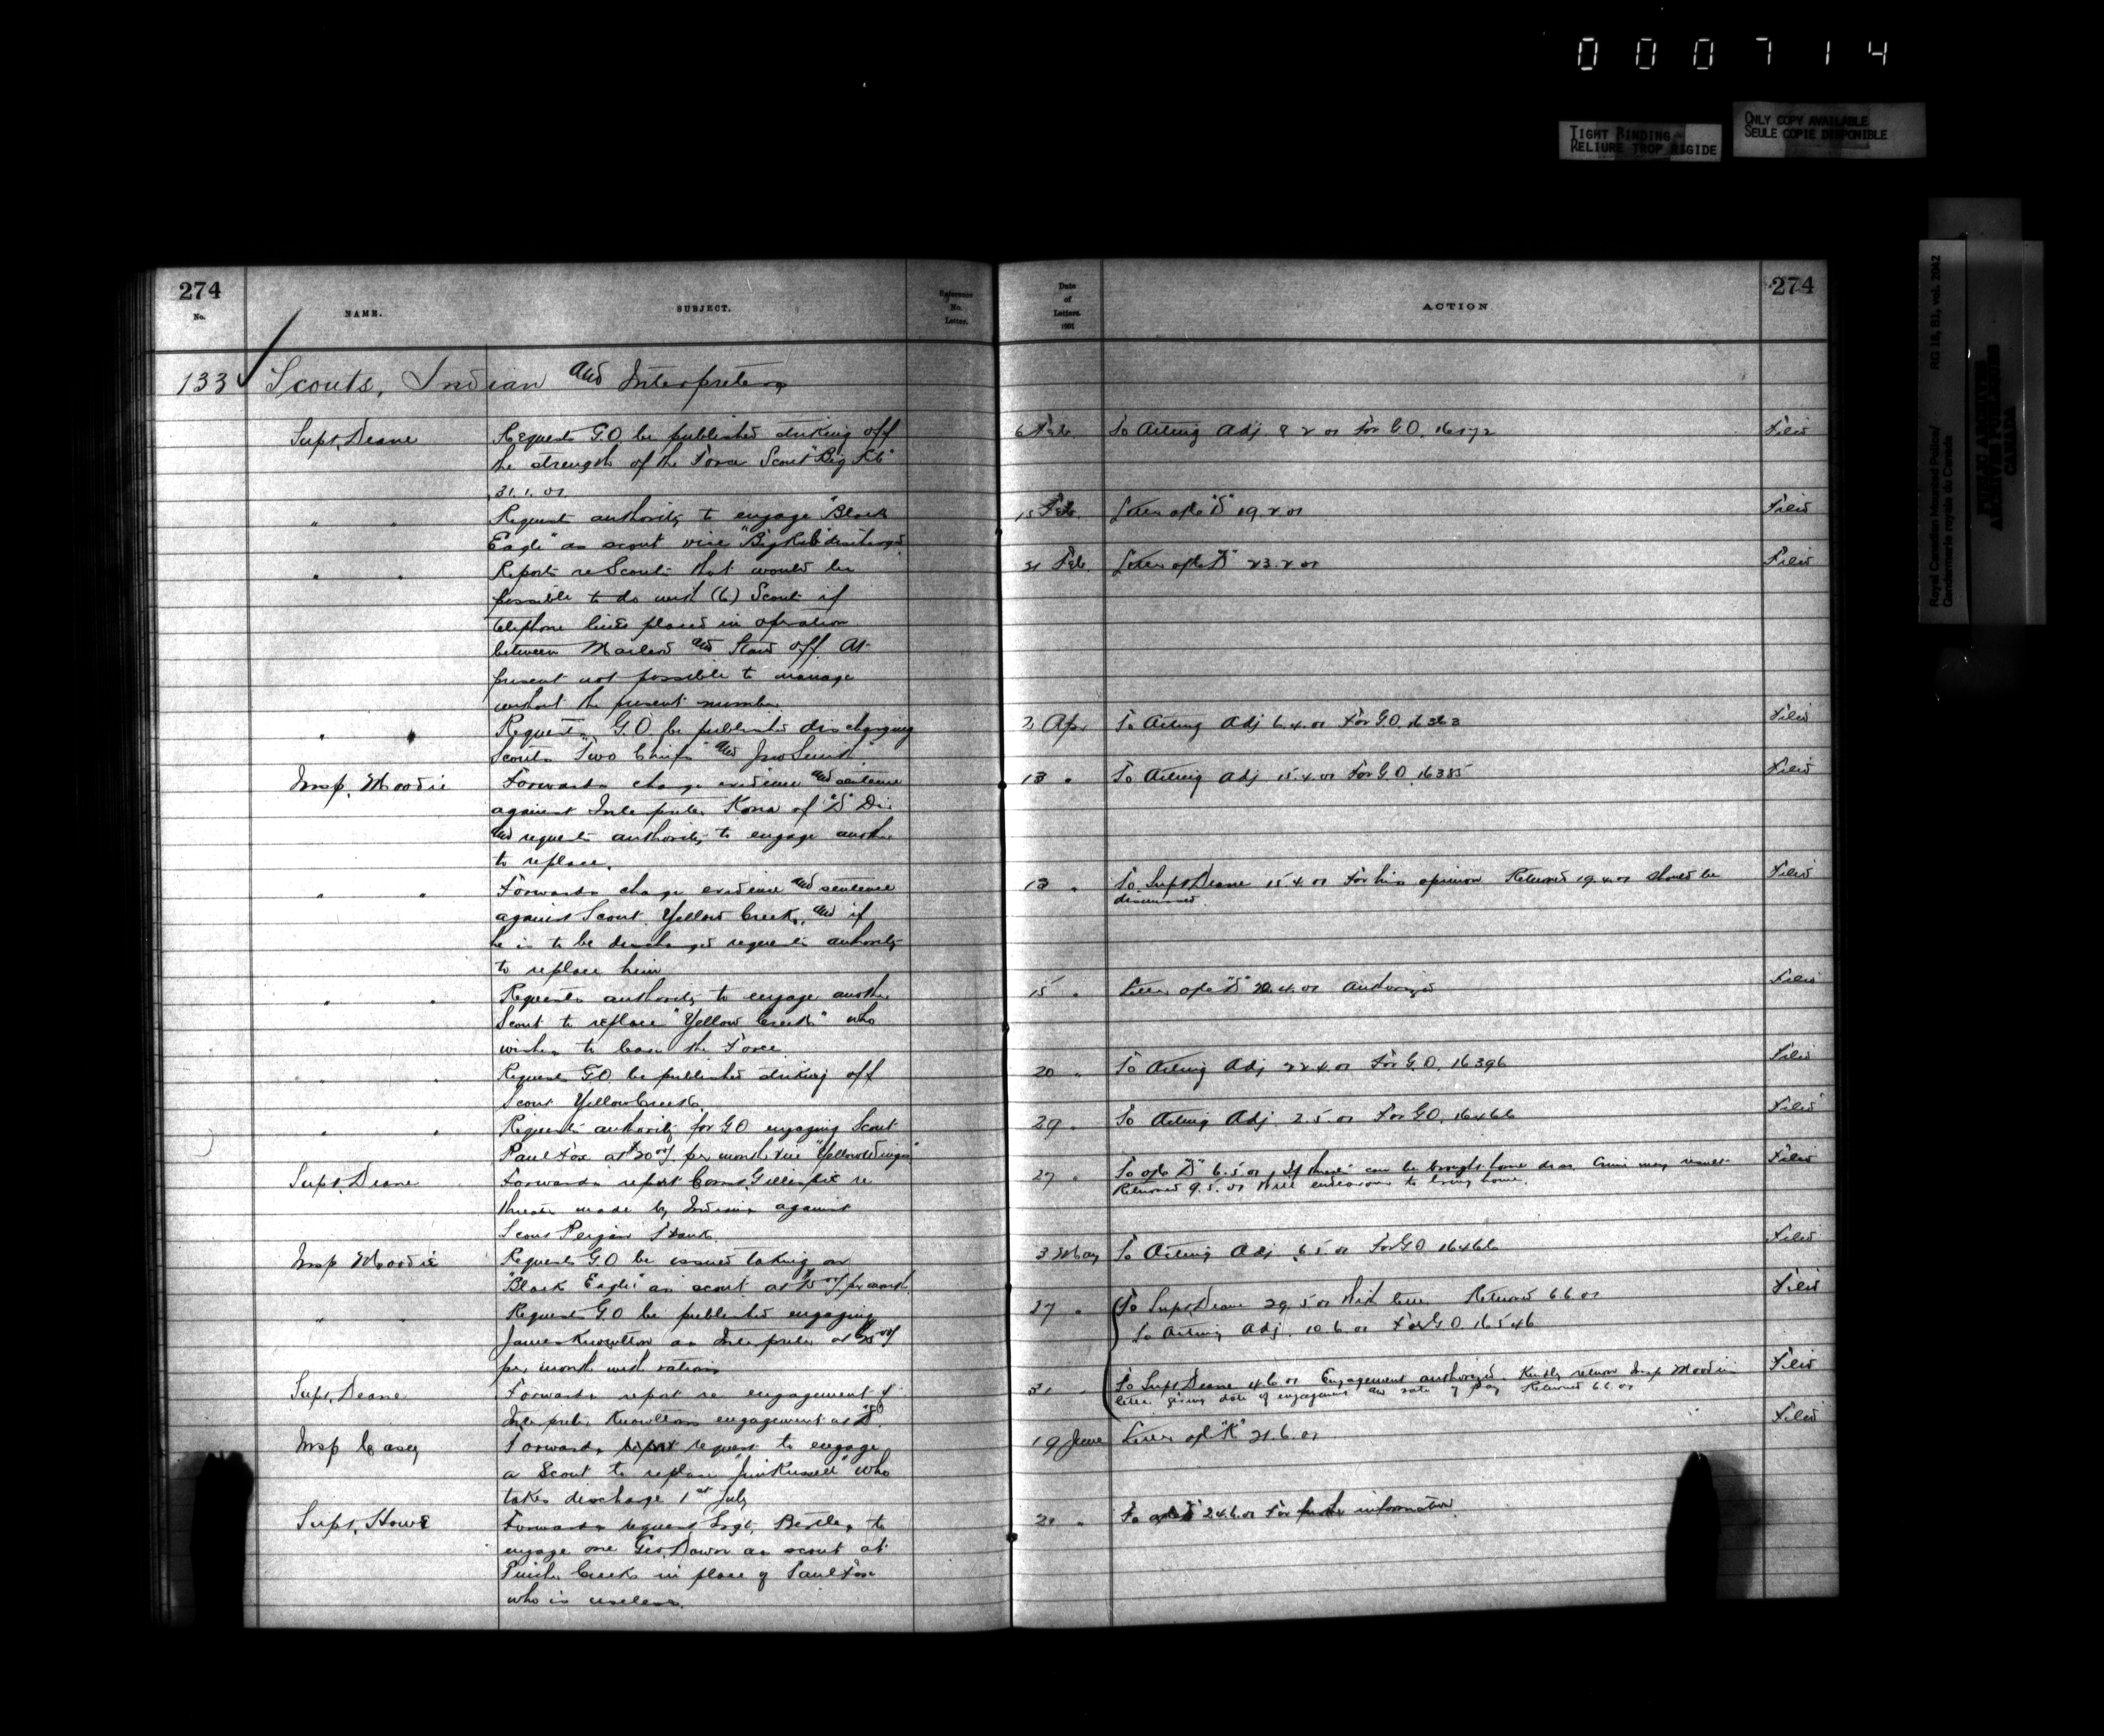 000714
TIGHT BINDING
RELIURE TROP RIGIDE
ONLY COPY AVAILABLE
SEULE COPIE DISPONIBLE
Royal Canadian Mounted Police/ RG 18, B1, vol. 2042
Gendarmerie royale du Canada
PUBLIC ARCHIVES
ARCHIVES PUBLIQUES
CANADA
274
No.
NAME.
SUBJECT.
Reference
No.
Letter.
Date
of
Letters.
1901
ACTION
274
133 Scouts, Indian and Interpreters
Supt. Deane
Requests G.O. be published striking off
the strength of the Force Scout "Big Rib"
31.1.01
6 Feb.
To Acting Adj 8.2.01 For G.O. 16172
Filed
" "
Requests authority to engage "Black
Eagle" as scout vice "Big Rib" discharged
15 Feb.
Letter ofc "D" 19.2.01
Filed
" "
Reports re Scouts that would be
possible to do with (6) Scouts if
telephone lines placed in operation
between Macleod and Stand off. At
present not possible to manage
without the present number
21 Feb.
Letter ofc "D" 23.2.01
Filed
" "
Requests G.O. be published discharging
Scouts "Two Chiefs" and "Jno Smith"
2 Apr
To Acting Adj 6.4.01 For G.O. 16363
Filed
Insp. Moodie
Forwards charge evidence and sentence
against Interpreter Kona of "D" Div
and requests authority to engage another
to replace.
13 "
To Acting Adj 15.4.01 For G.O. 16385
Filed
" "
Forwards charge evidence and sentence
against Scout Yellow Creek, and if
he is to be discharged requests authority
to replace him
13 "
To Supt Deane 15.4.01 For his opinion Returned 19.4.01 should be
dismissed.
Filed
" "
Requests authority to engage another
Scout to replace "Yellow Creek" who
wishes to leave the Force
15 "
Letter ofc "D" 20.4.01 authorized
Filed
" "
Requests G.O. be published striking off
Scout Yellow Creek.
20 "
To Acting Adj 22.4.01 For G.O. 16396
Filed
" "
Requests authority for G.O engaging Scout
Paul Fox at per month vice "Yellow Wings"
29 "
To Acting Adj. 2.5.01 For G.O. 16466
Filed
Supt. Deane
Forwards report Const. Gillespie re
threats made by Indians against
Scout
27 "
To ofc "D" 6.5.01. If threats can be brought home do so. Crime may result
Returned 9.5.01 Will endeavour to bring home.
Filed
Insp Moodie
Requests G.O be issued taking on
"Black Eagle" as scout at per month
3 May
To Acting Adj 6.5.01 For G.O 16466
Filed
" "
Requests G.O be published engaging
James Knowlton as Interpreter at
per month with rations
27 "
To Supt Deane 29.5.01 With letter Returned 6.6.01
To Acting Adj. 10.6.01 For G.O. 16546
Filed
Supt. Deane
Forwards report re engagement of
Interpreter Knowltons engagement as
31 "
To Supt Deane 4.6.01 Engagement authorized. Kindly return Insp Moodie's
letter giving date of engagement and rate of pay Returned 6.6.01
Filed
Insp Casey
Forwards report request to engage
a Scout to replace "Jim Russell" who
takes discharge 1st July
19 June
Letter ofc "K" 21.6.01
Filed
Supt. Howe
Forwards request Sergt. to
engage one Geo. Dawn as scout at
Pincher Creek in place of Paul Fox
who is useless.
21 "
To ofc "D" 24.6.01 For further information.